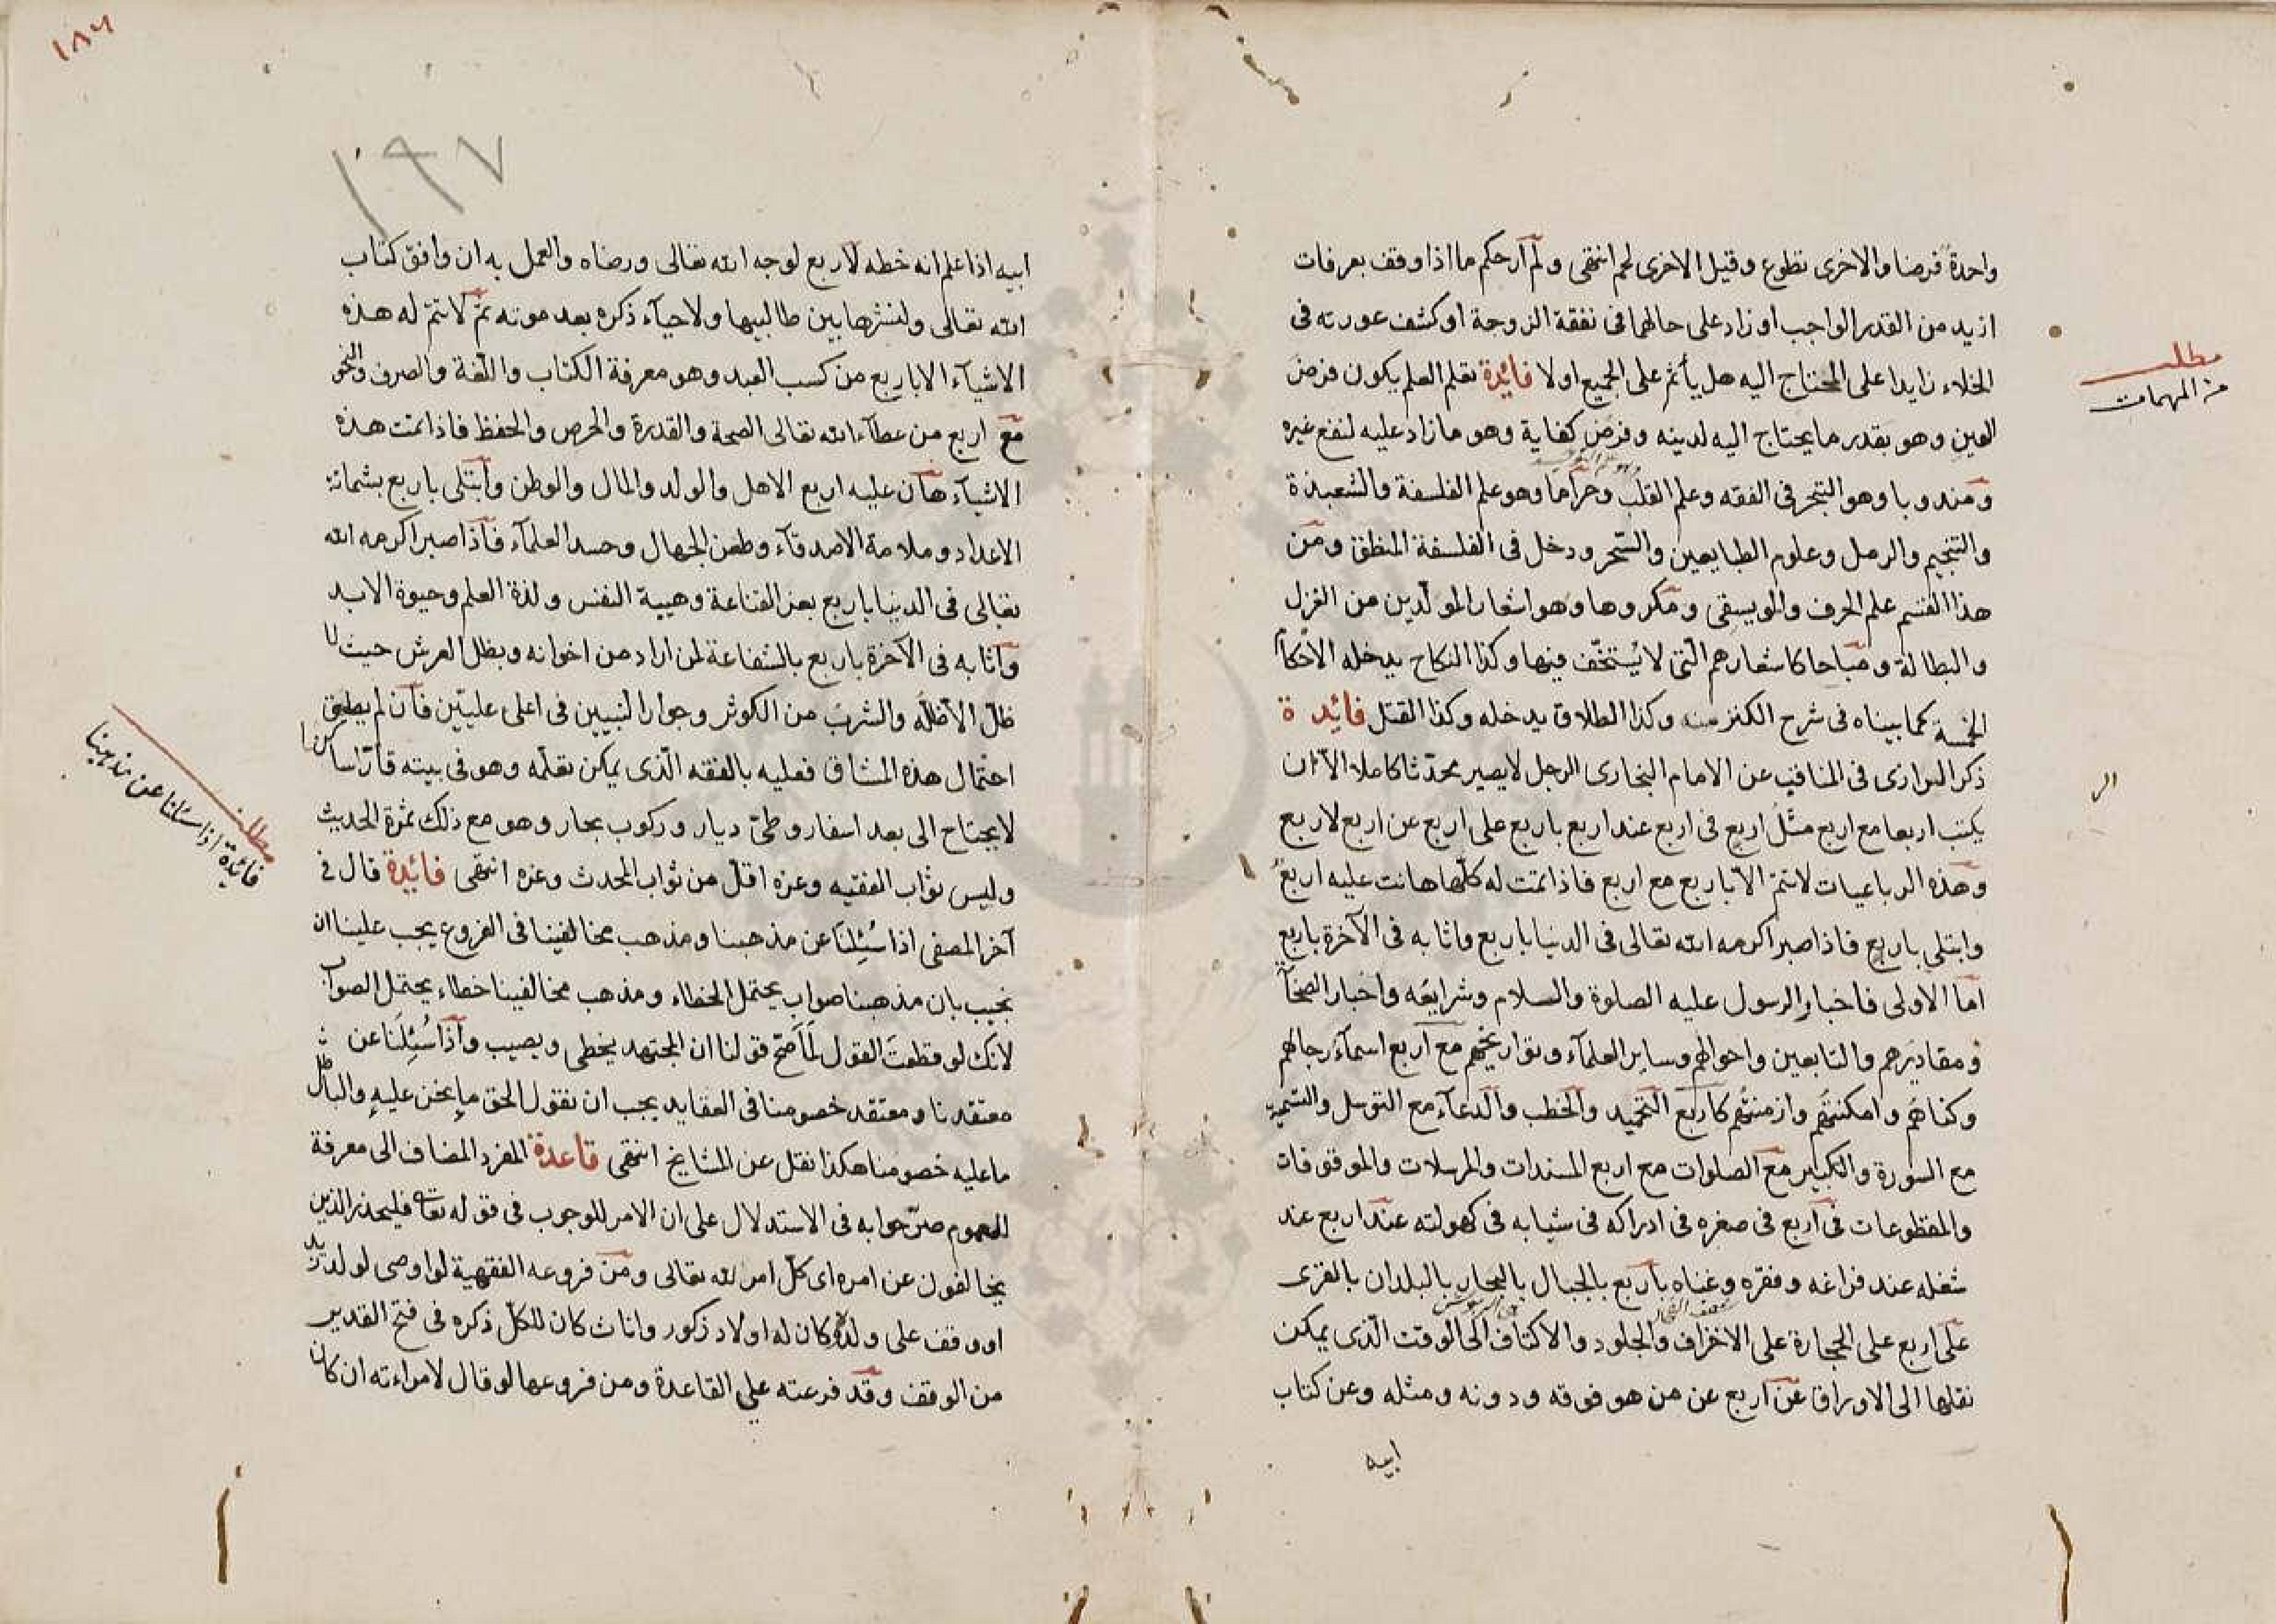 واحدة فرضا والاخرى تطوع وقيل الاخرى لحم انتهى ولم ار حكم ما اذا وقف بعرفات
ازيد من القدر الواجب او زاد على حالهما فى نفقة الزوجة او كشف عورته فى
الخلاء زايدا على المحتاج اليه هل يأثم على الجميع اولا فائدة تعلم العلم يكون فرض
العين وهو بقدر ما يحتاج اليه لدينه وفرض كفاية وهو ما زاد عليه لنفع غيره
ومندوبا وهو التبحر فى الفقه وعلم القلب وحراما وهو علم الفلسفة والشعبذة
والتنجيم والرمل وعلوم الطبايعين والسحر ودخل فى الفلسفة المنطق ومن
هذا القسم علم الحرف والموسيقى ومكروها وهو اشعار المولدين من الغزل
والبطالة ومباحا كاشعارهم التى لا يستخف فيها وكذا النكاح يدخله الاحكام
الخمسة كما بيناه فى شرح الكنز منه وكذا الطلاق يدخله وكذا القتل فائدة
ذكر البزازى فى المناقب عن الامام البخارى الرجل لا يصير محدثا كاملا الا ان
يكتب اربعا مع اربع مثل اربع فى اربع عند اربع باربع على اربع عن اربع لاربع
وهذه الرباعيات لا تتم الا باربع مع اربع فاذا تمت له كلها هانت عليه اربع
وابتلى باربع فاذا صبر اكرمه الله تعالى فى الدنيا باربع واثابه فى الآخرة باربع
اما الاولى فاخبار الرسول عليه الصلوة والسلام وشرايعه واخبار الصحابة
ومقاديرهم والتابعين واحوالهم وساير العلمآء وتواريخهم مع اربع اسمآء رجالهم
وكناهم وامكنتهم وازمنتهم كاربع التحميد والخطب والدعآء مع التوسل والتسمية
مع السورة والتكبير مع الصلوات مع اربع المسندات والمرسلات والموقوفات
والمقطوعات فى اربع فى صغره فى ادراكه فى شبابه فى كهولته عند اربع عند
شغله عند فراغه وفقره وغناه باربع بالجبال بالبحار بالبلدان بالقرى
على اربع على الحجارة على الاخزاف والجلود والاكتاف الى الوقت الذى يمكن
نقلها الى الاوراق عن اربع عن من هو فوقه ودونه ومثله وعن كتاب
ابيه
مطلب
من المهمات
١٨٦
١٩٧
ابيه اذا علم انه خطه لاربع لوجه الله تعالى ورضاه والعمل به ان وافق كتاب
الله تعالى ولنشرها بين طالبيها ولاحيآء ذكره بعد موته ثم لا تتم له هذه
الاشيآء الا باربع من كسب العبد وهو معرفة الكتاب واللغة والصرف والنحو
مع اربع من عطآء الله تعالى الصحة والقدرة والحرص والحفظ فاذا تمت هذه
الاشيآء هان عليه اربع الاهل والولد والمال والوطن وابتلى باربع بشماتة
الاعداد وملامة الاصدقآء وطعن الجهال وحسد العلمآء فاذا صبر اكرمه الله
تعالى فى الدنيا باربع بعز القناعة وهيبة النفس ولذة العلم وحيوة الابد
واثابه فى الآخرة باربع بالشفاعة لمن اراد من اخوانه وبظل العرش حيث لا
ظل الا ظله والشرب من الكوثر وجوار النبيين فى اعلى عليين فان لم يطيق
احتمال هذه المشاق فعليه بالفقه الذى يمكن تعلمه وهو فى بيته قار ساكن
لا يحتاج الى بعد اسفار وطى ديار وركوب بحار وهو مع ذلك ثمرة الحديث
وليس ثواب الفقيه وعزه اقل من ثواب المحدث وعزه انتهى فائدة قال فى
آخر المصفى اذا سئلنا عن مذهبنا ومذهب مخالفينا فى الفروع يجب علينا ان
نجيب بان مذهبنا صواب يحتمل الخطاء ومذهب مخالفينا خطاء يحتمل الصواب
لانك لو قطعت القول لما صح قولنا ان المجتهد يخطى ويصيب واذا سئلنا عن
معتقدنا ومعتقد خصومنا فى العقايد يجب ان نقول الحق ما نحن عليه والباطل
ما عليه خصومنا هكذا نقل عن المشايخ انتهى قاعدة المفرد المضاف الى معرفة
للعموم صرحوا به فى الاستدلال على ان الامر للوجوب فى قوله تعالى فليحذر الذين
يخالفون عن امره اى كل امر لله تعالى ومن فروعه الفقهية لو اوصى لولد زيد
او وقف على ولده وكان له اولاد ذكور واناث كان للكل ذكره فى فتح القدير
من الوقف وقد فرعته على القاعدة ومن فروعها لو قال لامراءته ان كان
مطلب
فائدة اذا سئلنا عن مذهبنا